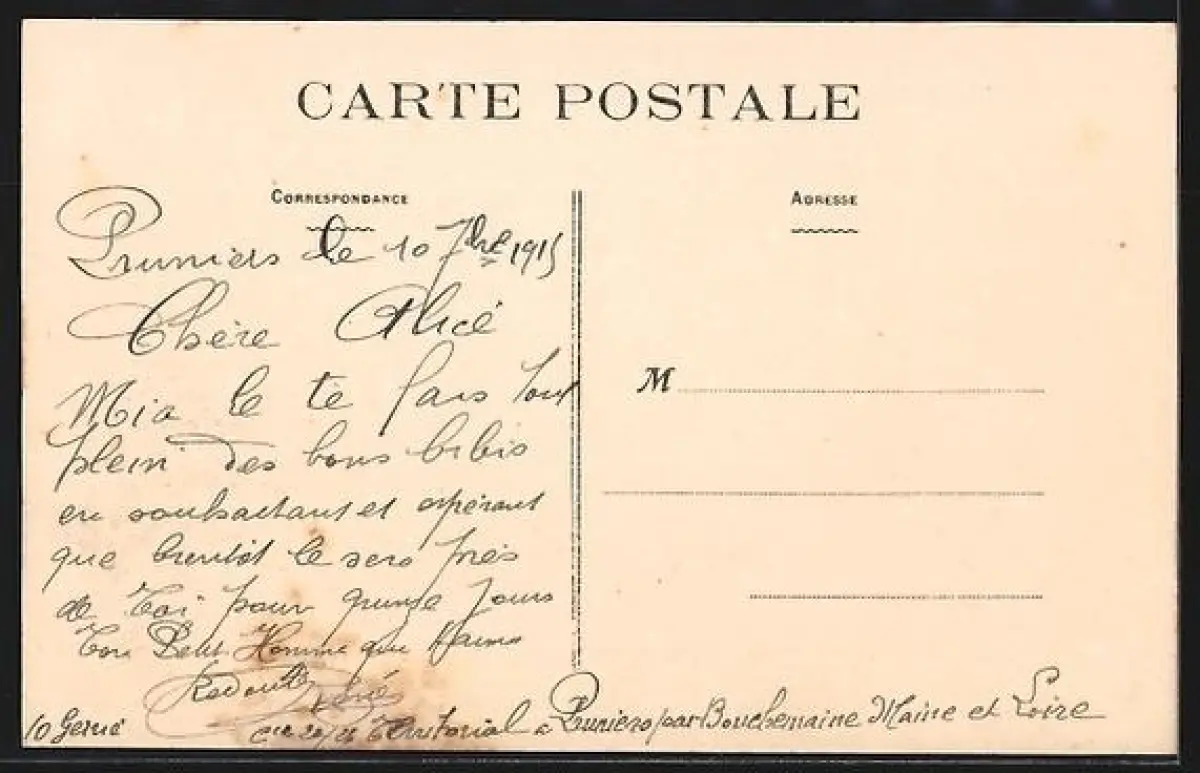 CARTE POSTALE
CORRESPONDANCE
ADRESSE
Pruniers le 10 7bre 1915
Chère Alice
Mia le te fais tout
plein des bons bibis
en souhaitant et espérant
que bientôt le sera près
de Toi pour quinze jours
Ton Petit Homme que t'aime
M
10 Genie
Cie Territorial a Pruniers par Bouchemaine Maine et Loire